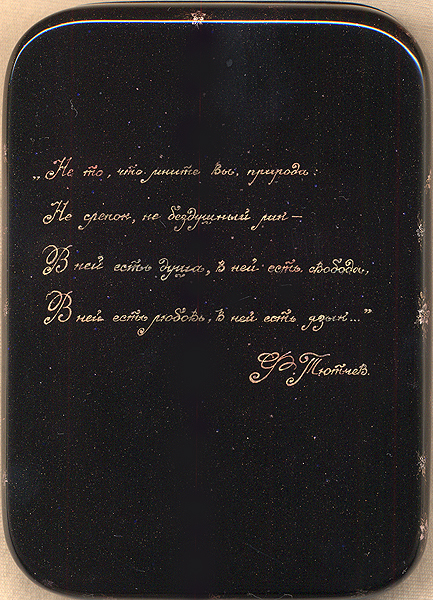 „Не то, что мните вы, природа:
Не слепок, не бездушный лик –
В ней есть душа, в ней есть свобода,
В ней есть любовь, в ней есть язык..."
Ф. Тютчев.